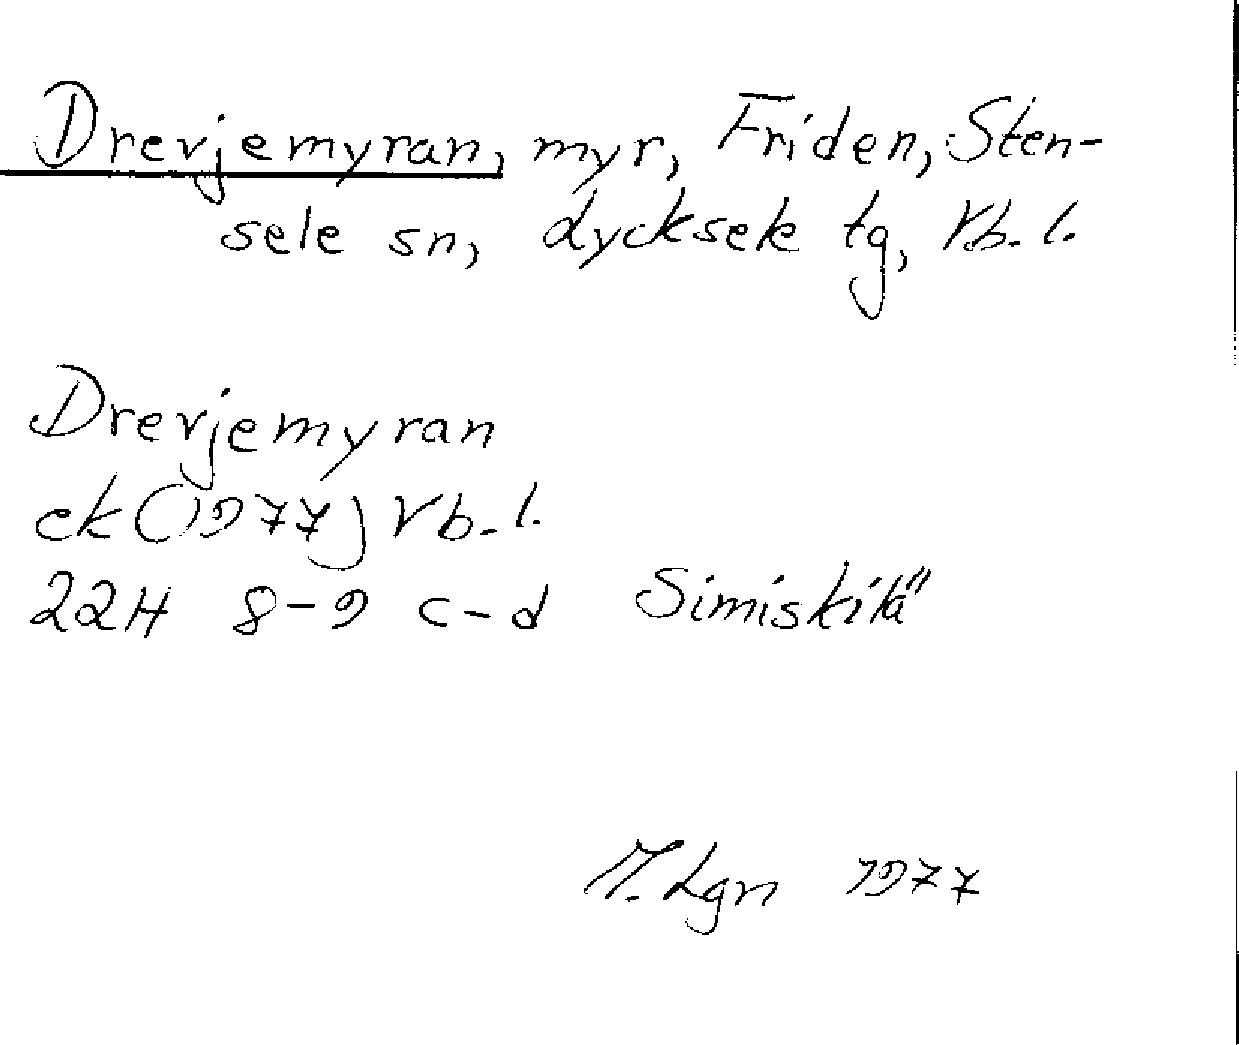 Drevjemyran, myr, Friden, Sten-
sele sn, Lycksele tg, Vb. l.
Drevjemyran
ek (1977) Vb. l.
22H 8-9 c-d Simiskilä
Lgn 1977